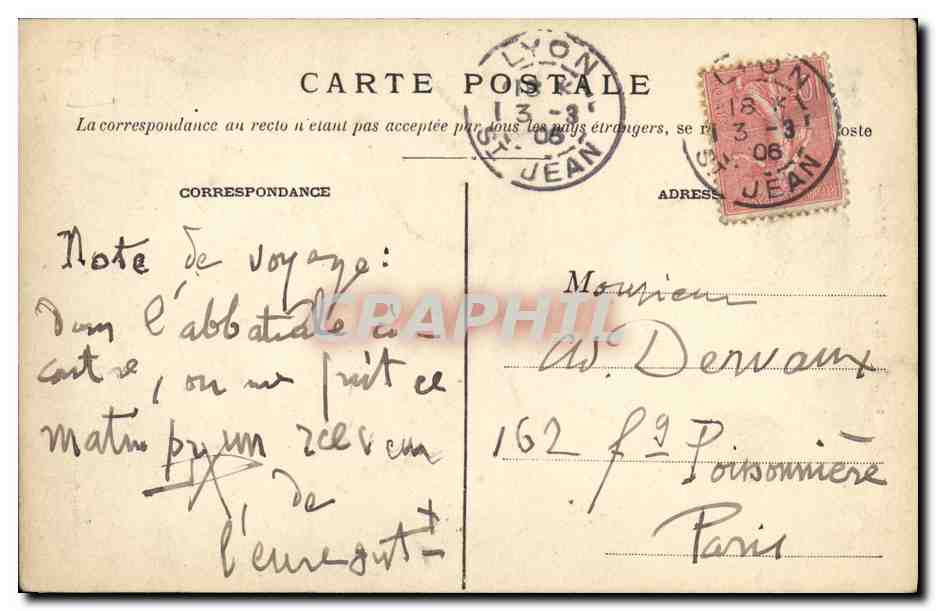 CARTE POSTALE
La correspondance au recto n'étant pas acceptée par tous les pays étrangers, se oste
LYON
18 K
3 -3
06
ST. JEAN
LYON
18 K
3 -3
06
ST. JEAN
CORRESPONDANCE
ADRESS
Note de voyage :
l'abbatiale ci-
contre, on me fait ce
matin un
, de
CPARHIL
Monsieur
Ad. Dervaux
162 fg Poissonnière
Paris